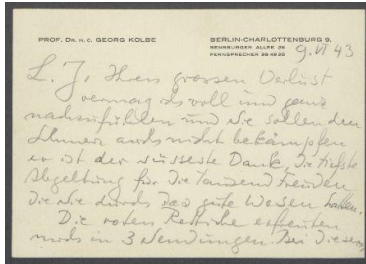 PROF. DR. H. C. GEORG KOLBE
BERLIN-CHARLOTTENBURG 9,
SENSBURGER ALLEE 26
FERNSPRECHER 99 49 25
9. VI 43
L. J. Ihren grossen Verlust
vermag ich voll und ganz
nachzufühlen und Sie sollen den
Schmerz auch nicht bekämpfen
er ist der süsseste Dank, die tiefste
Abgeltung für die tausend Freuden,
die Sie durch das gute Wesen hatten.
Die roten Rettiche erfreuten
mich in 3 Sendungen. Bei diesem